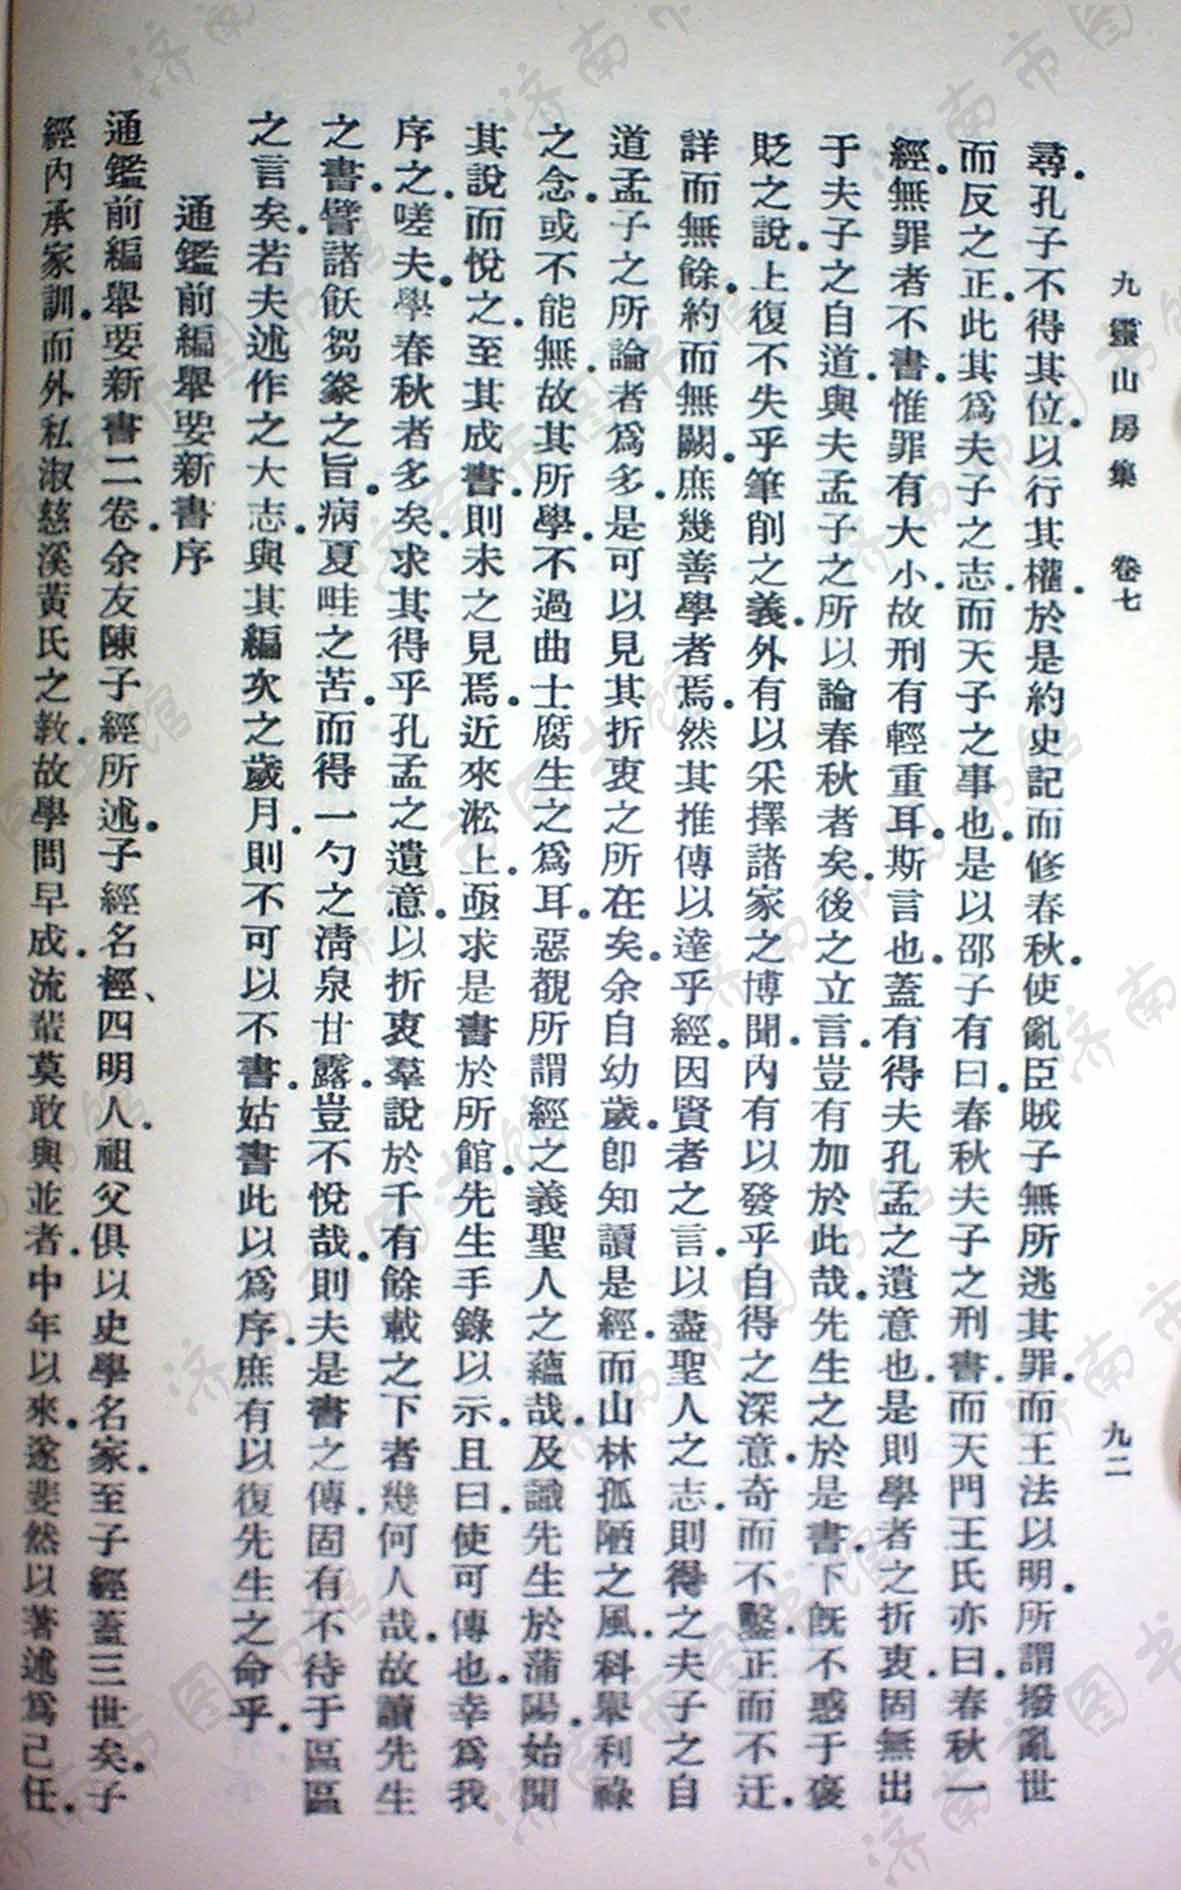 九靈山房集　卷七　九二
尋。孔子不得其位。以行其權。於是約史記而修春秋。使亂臣賊子無所逃其罪。而王法以明。所謂撥亂世
而反之正。此其爲夫子之志。而天子之事也。是以邵子有曰。春秋夫子之刑書。而天門王氏亦曰。春秋一
經。無罪者不書。惟罪有大小。故刑有輕重耳。斯言也。蓋有得夫孔孟之遺意也。是則學者之折衷。固無出
于夫子之自道。與夫孟子之所以論春秋者矣。後之立言。豈有加於此哉。先生之於是書。下旣不惑于褒
貶之說。上復不失乎筆削之義。外有以采擇諸家之博聞。內有以發乎自得之深意。奇而不鑿。正而不迂。
詳而無餘。約而無闕。庶幾善學者焉。然其推傳以達乎經。因賢者之言。以盡聖人之志。則得之夫子之自
道。孟子之所論者爲多。是可以見其折衷之所在矣。余自幼歲。卽知讀是經。而山林孤陋之風。科舉利祿
之念。或不能無。故其所學。不過曲士腐生之爲耳。惡覩所謂經之義聖人之蘊哉。及識先生於蒲陽。始聞
其說而悅之。至其成書。則未之見焉。近來淞上。亟求是書於所館。先生手錄以示。且曰。使可傳也。幸爲我
序之。嗟夫。學春秋者多矣。求其得乎孔孟之遺意。以折衷羣說於千有餘載之下者。幾何人哉。故讀先生
之書。譬諸飫芻豢之旨。病夏畦之苦。而得一勺之淸泉甘露。豈不悅哉。則夫是書之傳。固有不待于區區
之言矣。若夫述作之大志。與其編次之歲月。則不可以不書。姑書此以爲序。庶有以復先生之命乎。
通鑑前編舉要新書序
通鑑前編舉要新書二卷。余友陳子經所述。子經名桱、四明人。祖父俱以史學名家。至子經蓋三世矣。子
經內承家訓。而外私淑慈溪黃氏之敎。故學問早成。流輩莫敢與並者。中年以來。遂斐然以著述爲己任。